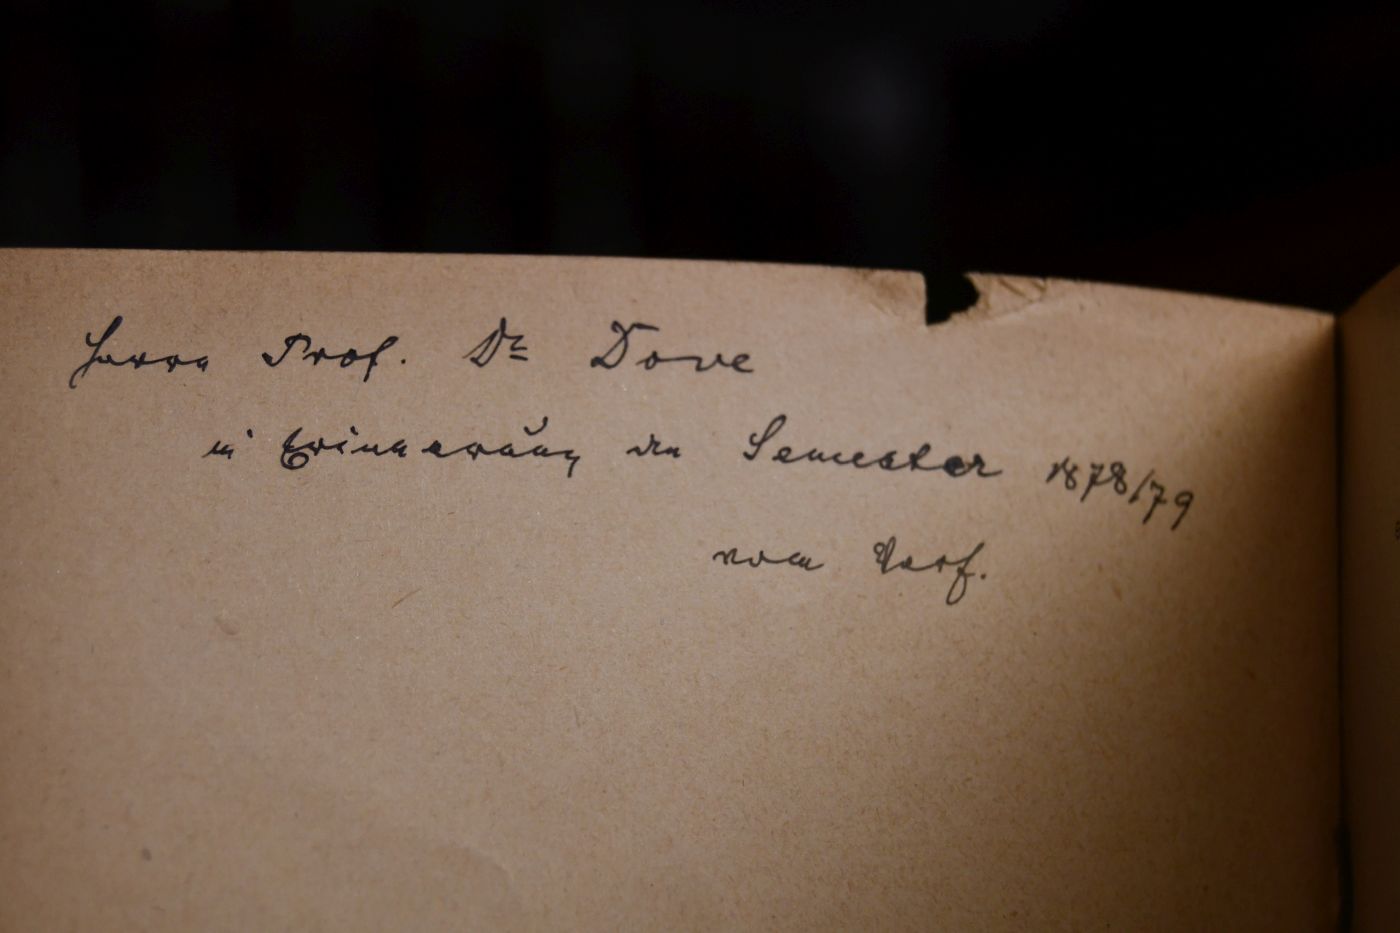 Herrn Prof. Dr Dove
in Erinnerung den Semester 1878/79
vom Verf.